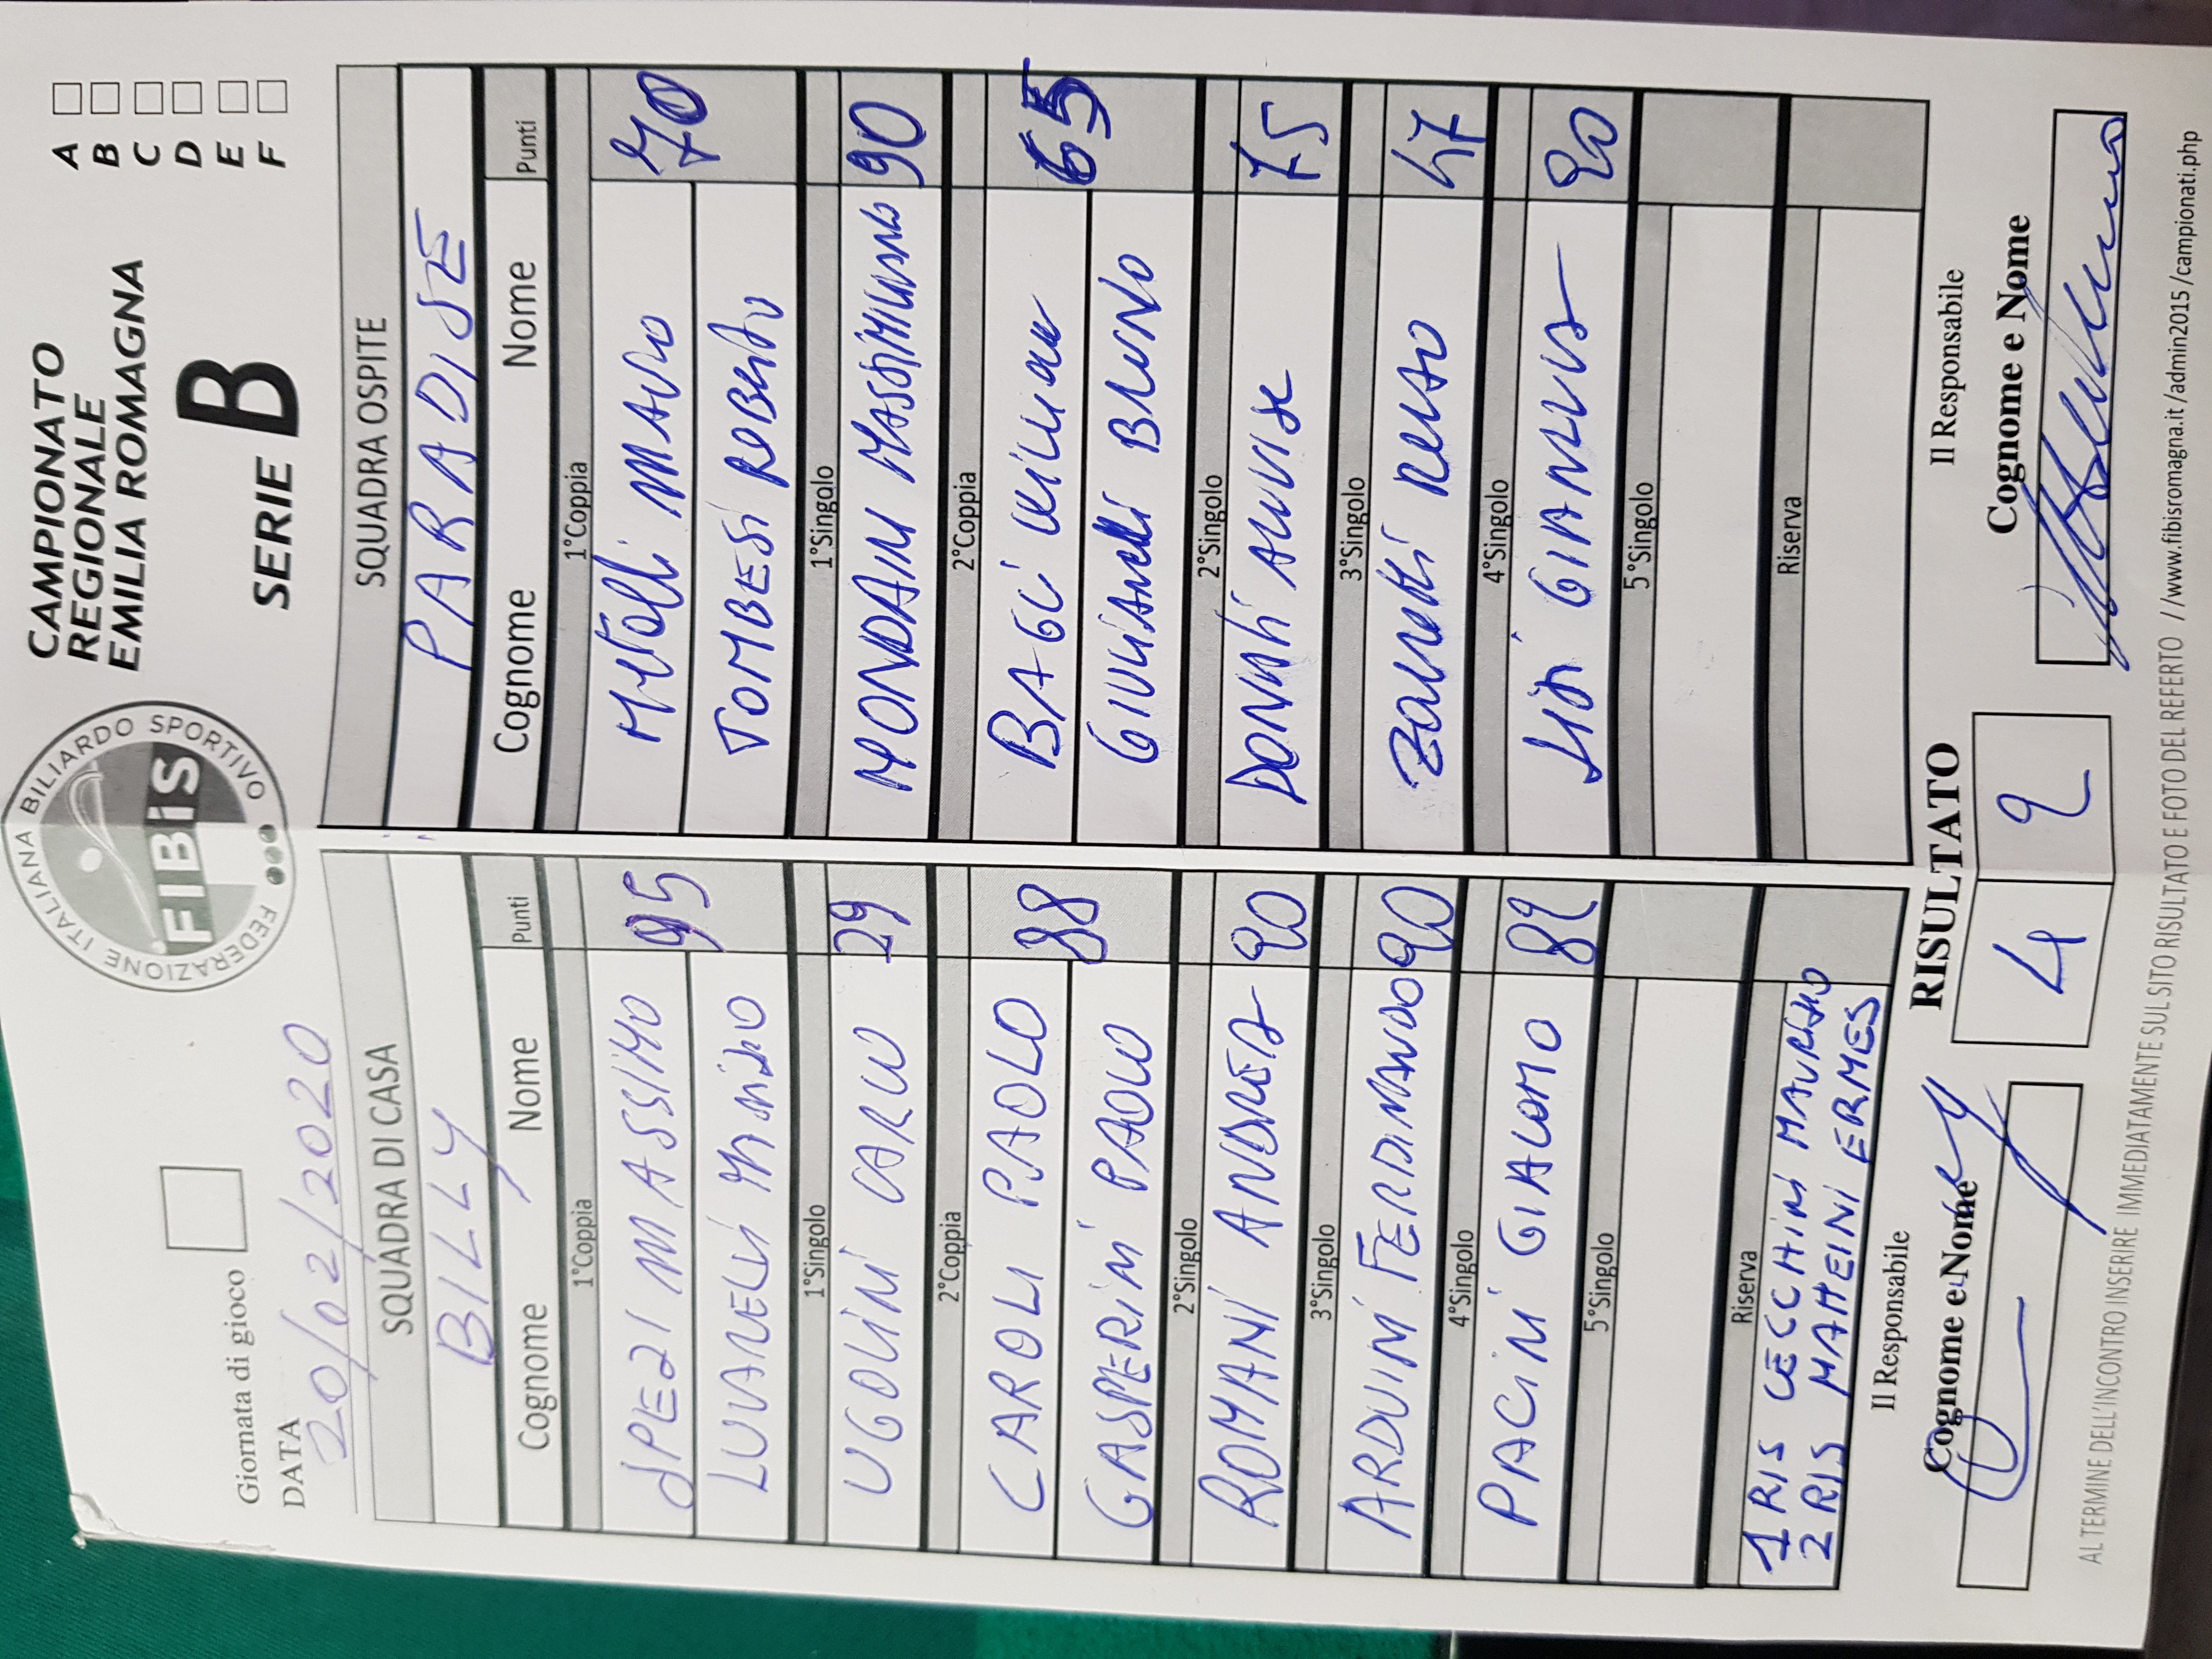 FEDERAZIONE ITALIANA BILIARDO SPORTIVO
FIBiS
CAMPIONATO
REGIONALE
EMILIA ROMAGNA
SERIE B
A
B
C
D
E
F
Giornata di gioco
DATA
20/02/2020
SQUADRA DI CASA
BILLY
Cognome Nome Punti
1°Coppia
SPEZI MASSIMO 95
1°Singolo
UGOLINI CARLO 29
2°Coppia
CAROLI PAOLO 88
GASPERINI PAOLO
2°Singolo
ROMANI ANDREA 90
3°Singolo
ARDUINI FERDINANDO 90
4°Singolo
PACINI GIACOMO 89
5°Singolo
Riserva
1 RIS CECCHINI MAURIZIO
2 RIS ERMES
SQUADRA OSPITE
PARADISE
Cognome Nome Punti
1°Coppia
70
TOMBESI ROBERTO
1°Singolo
MONDAINI MASSIMILIANO 90
2°Coppia
65
GIULIANELLI BRUNO
2°Singolo
DONATI 75
3°Singolo
47
4°Singolo
GIANLUCA 20
5°Singolo
Riserva
Il Responsabile
Cognome e Nome
RISULTATO
4 2
Il Responsabile
Cognome e Nome
AL TERMINE DELL'INCONTRO INSERIRE IMMEDIATAMENTE SUL SITO RISULTATO E FOTO DEL REFERTO //www.fibisromagna.it/admin2015/campionati.php